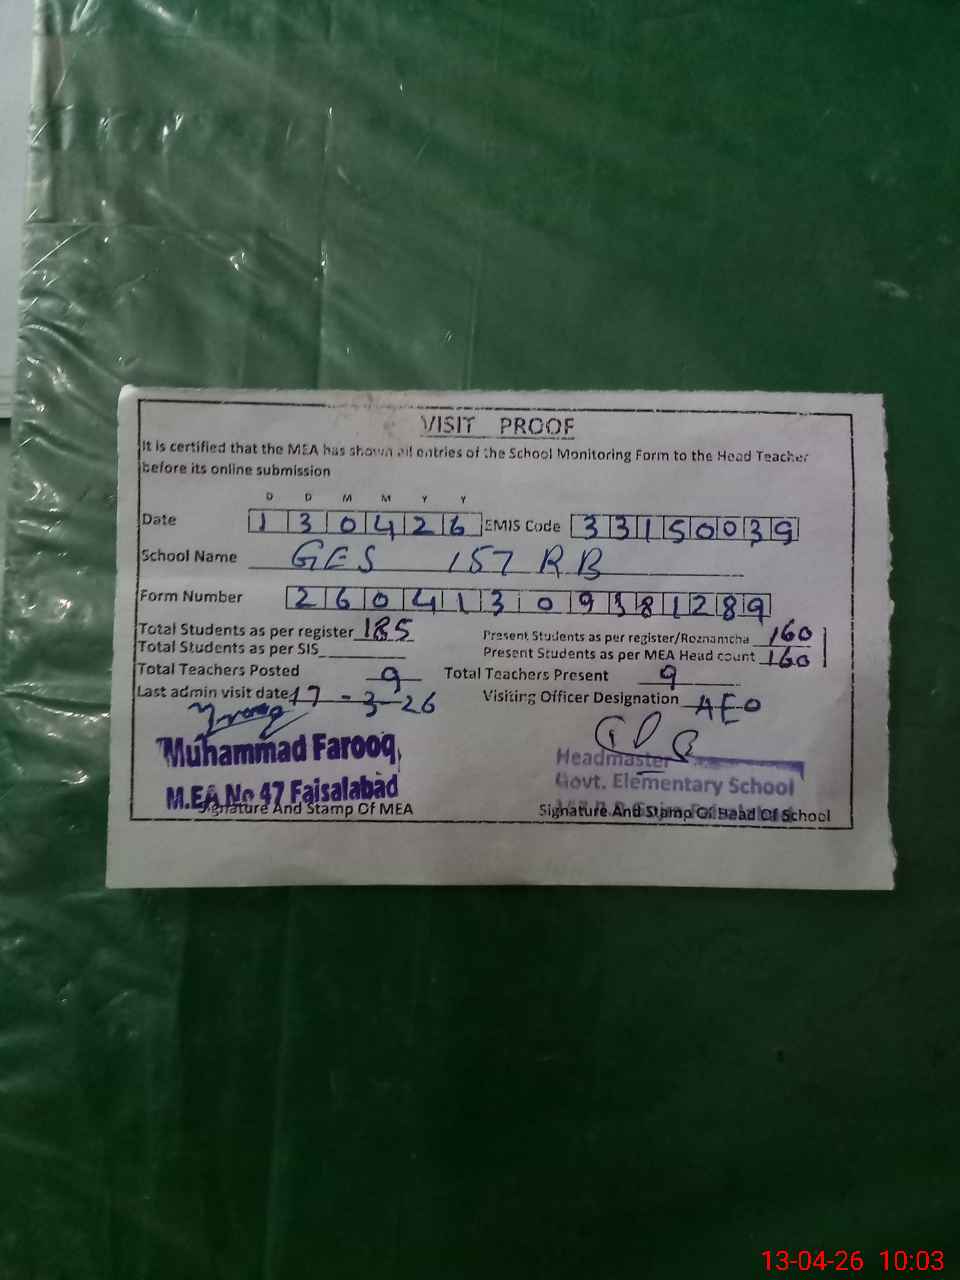 VISIT PROOF
It is certified that the MEA has shown all entries of the School Monitoring Form to the Head Teacher
before its online submission
D D M M Y Y
Date 1 3 0 4 2 6 EMIS Code 3 3 1 5 0 0 3 9
School Name GES 157 RB
Form Number 2 6 0 4 1 3 0 9 3 8 1 2 8 9
Total Students as per register 185 Present Students as per register/Roznamcha 160
Total Students as per SIS Present Students as per MEA Head count 160
Total Teachers Posted 9 Total Teachers Present 9
Last admin visit date 17-3-26 Visiting Officer Designation AEO
Muhammad Farooq
M.E.A No 47 Faisalabad
Signature And Stamp Of MEA
Headmaster
Govt. Elementary School
Signature And Stamp Of Head Of School
13-04-26 10:03